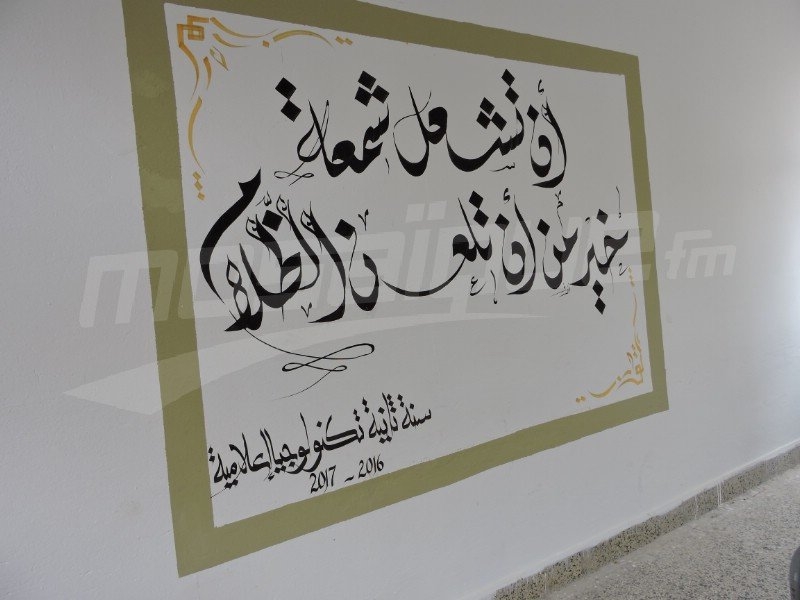 أن تشعل شمعة
خير من أن تلعن الظّلام
سنة ثانية تكنولوجيا إعلامية
2016 - 2017
mosaïque fm